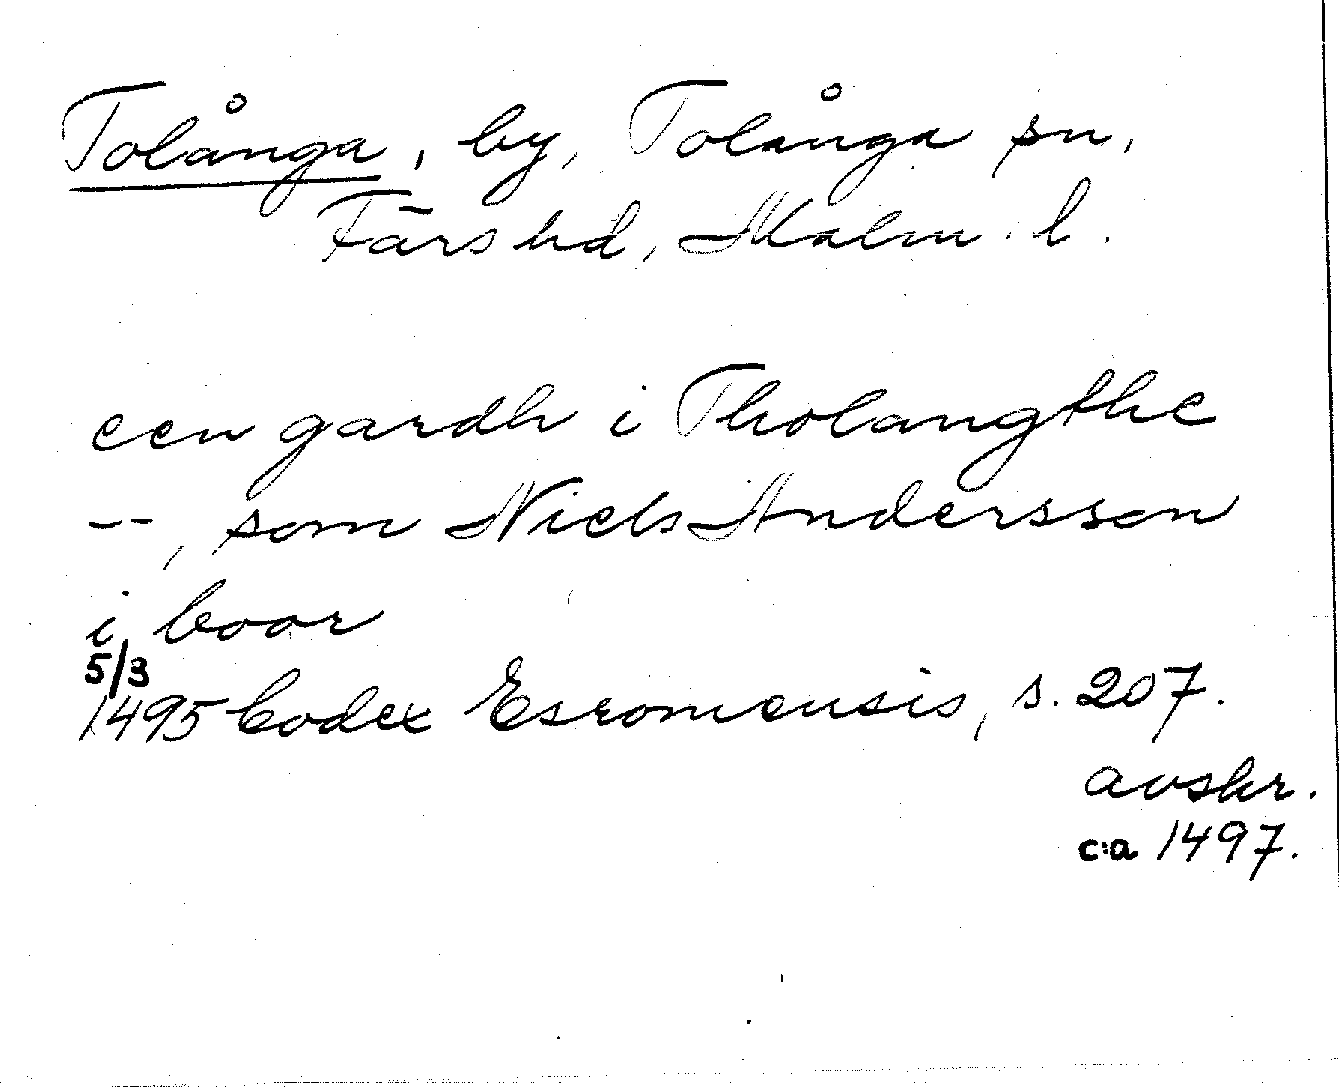 Tolånga, by, Tolånga sn,
Färs hd, Malm. l.
een gardh i Tholangthe
--, som Niels Andersson
i boor
5/3
1495 Codex Esromensis, s. 207.
avskr.
c:a 1497.